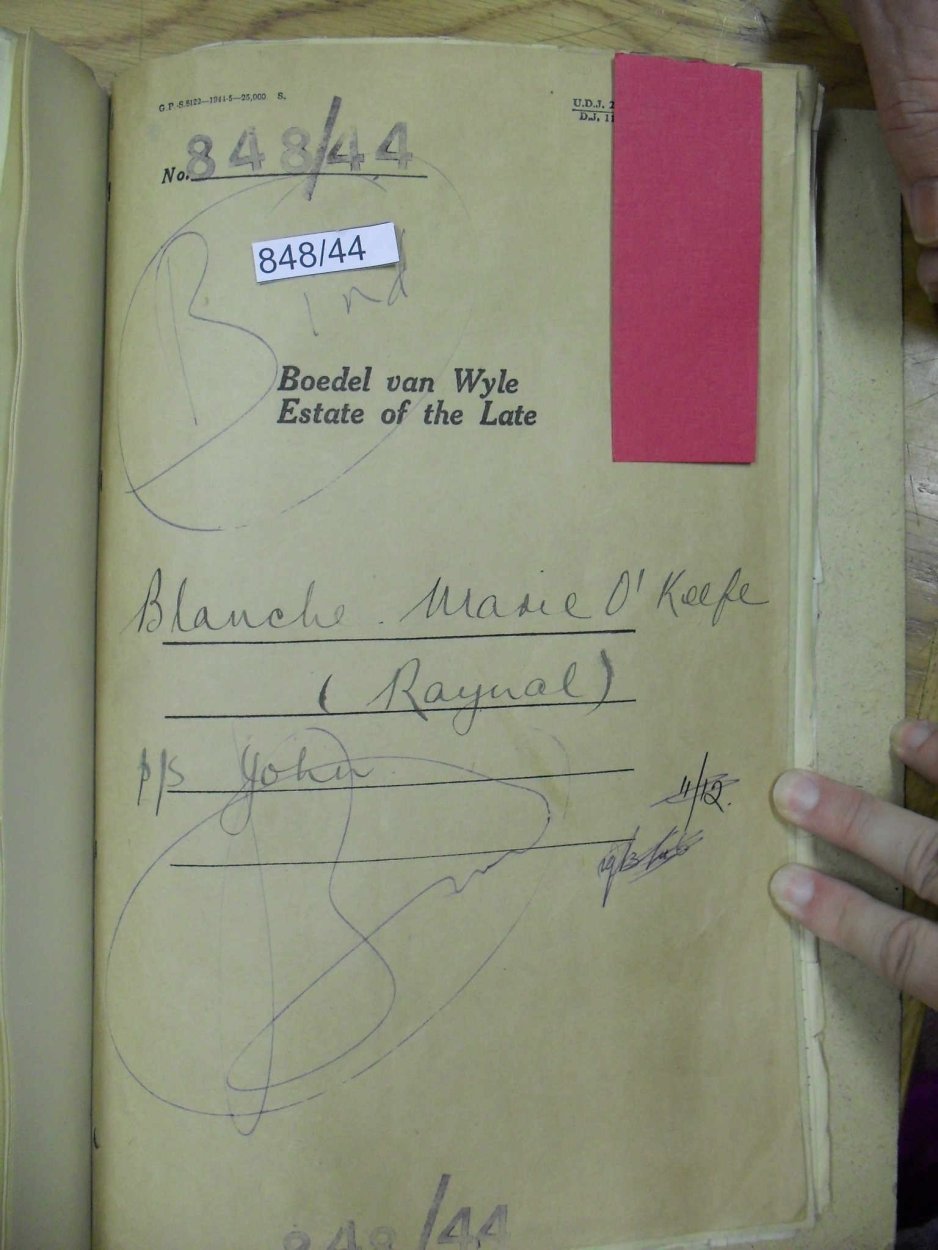 G.P.-S.8122—1944-5—25,000. S.
U.D.J. 2
D.J. 11
No. 848/44
848/44
Bind
Boedel van Wyle
Estate of the Late
Blanche Marie O'Keefe
(Raynal)
p/s John
11/12.
848/44